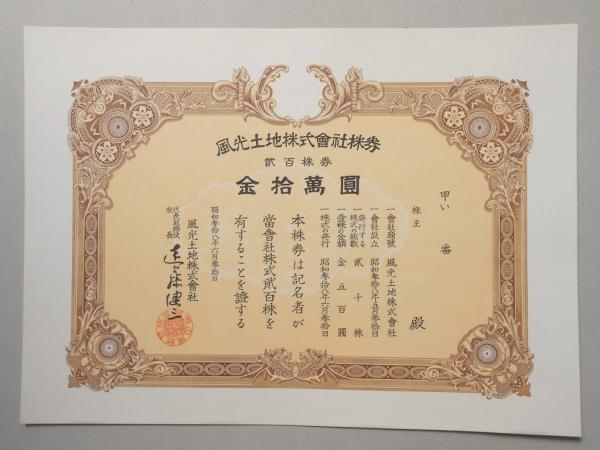 風光土地株式會社株券
貳百株券
金拾萬圓
甲い　番
株主　殿
一會社商號　風光土地株式會社
一會社設立　昭和参拾八年五月参拾日
一發行する株式の総数　貳千株
一壹株の金額　金五百圓
一株式の発行　昭和参拾八年六月参拾日
本株券は記名者が
當會社株式貳百株を
有することを證する
昭和参拾八年六月参拾日
風光土地株式會社
代表取締役社長